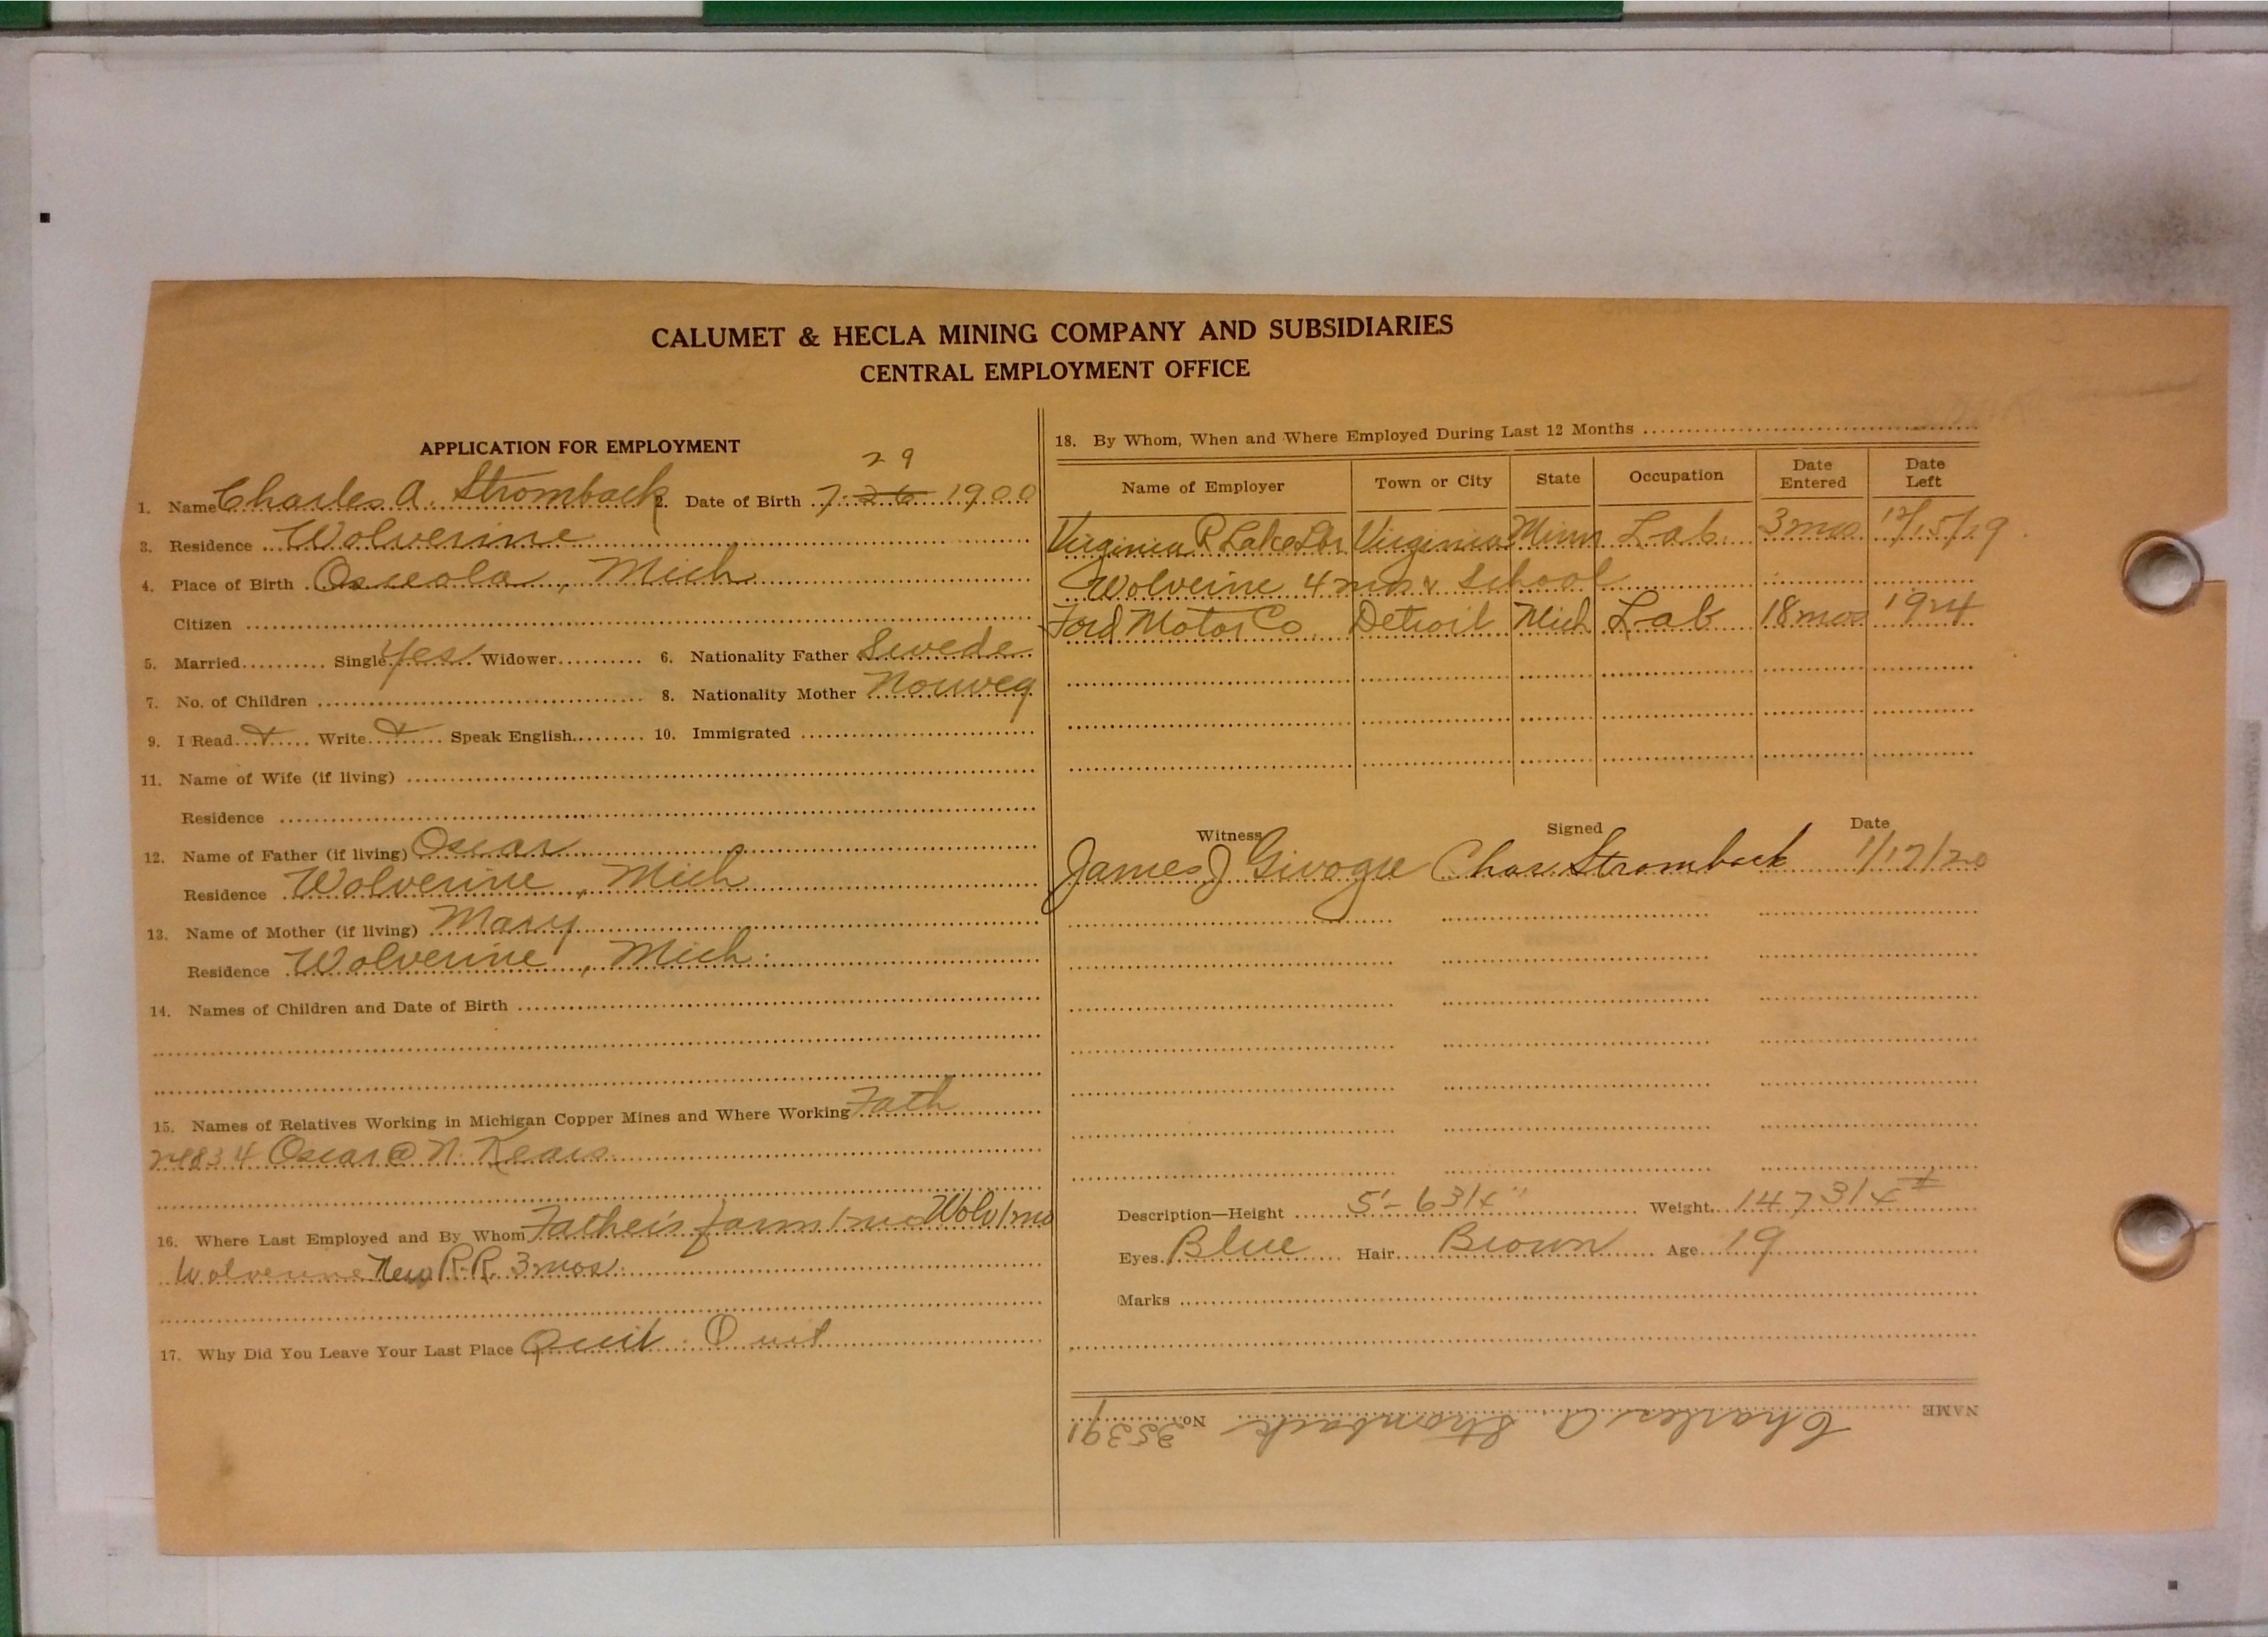 CALUMET & HECLA MINING COMPANY AND SUBSIDIARIES
CENTRAL EMPLOYMENT OFFICE
APPLICATION FOR EMPLOYMENT
29
1. Name Charles A. Stromback 2. Date of Birth 7-26-1900
3. Residence Wolverine
4. Place of Birth Osceola, Mich
Citizen
5. Married Single Yes Widower 6. Nationality Father Swede
7. No. of Children 8. Nationality Mother Norweg
9. I Read Write Speak English 10. Immigrated
11. Name of Wife (if living)
Residence
12. Name of Father (if living) Oscar
Residence Wolverine, Mich
13. Name of Mother (if living) Mary
Residence Wolverine, Mich.
14. Names of Children and Date of Birth
15. Names of Relatives Working in Michigan Copper Mines and Where Working Fath
Oscar @ N. Kears
16. Where Last Employed and By Whom Father's farm 1 mo Wolv 1 mo
Wolverine New R.R. 3 mos.
17. Why Did You Leave Your Last Place Quit. Quit
18. By Whom, When and Where Employed During Last 12 Months
Name of Employer Town or City State Occupation Date Entered Date Left
Virginia R Lake Virginia Minn Lab. 3 mos 12/15/19
Wolverine 4 mos & School
Ford Motor Co. Detroit Mich Lab 18 mos 1924
Witness Signed Date
James J Chas. Stromback 1/12/20
Description—Height 5'-6 3/4" Weight 147 3/4 #
Eyes Blue Hair Brown Age 19
Marks
NAME Charles A. Stromback No. 25391